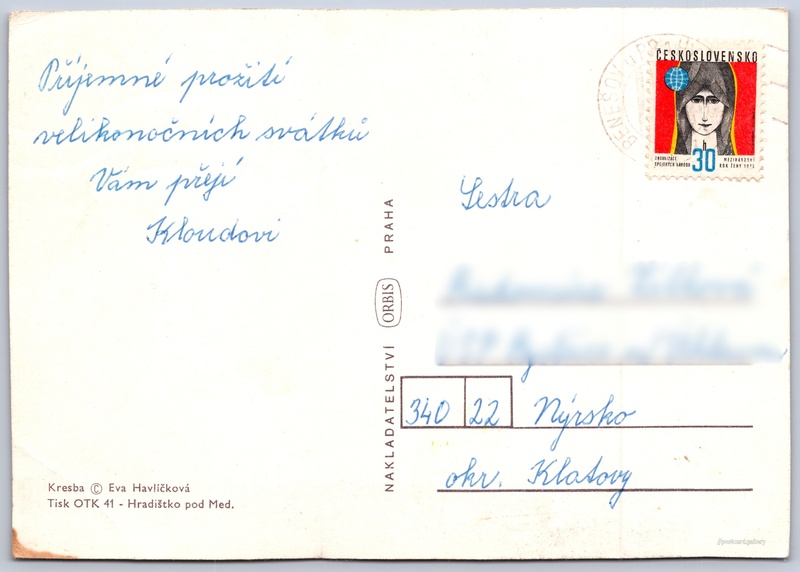 Příjemné prožití
velikonočních svátků
Vám přejí
Kloudovi
Kresba © Eva Havlíčková
Tisk OTK 41 - Hradištko pod Med.
NAKLADATELSTVÍ ORBIS PRAHA
BENEŠOV U PRAHY
ČESKOSLOVENSKO
h
30
ZASEDÁNÍ
SPOJENÝCH NÁRODŮ
MEZINÁRODNÍ
ROK ŽENY 1975
Sestra
340 22 Nýrsko
okr. Klatovy
//postcard.gallery